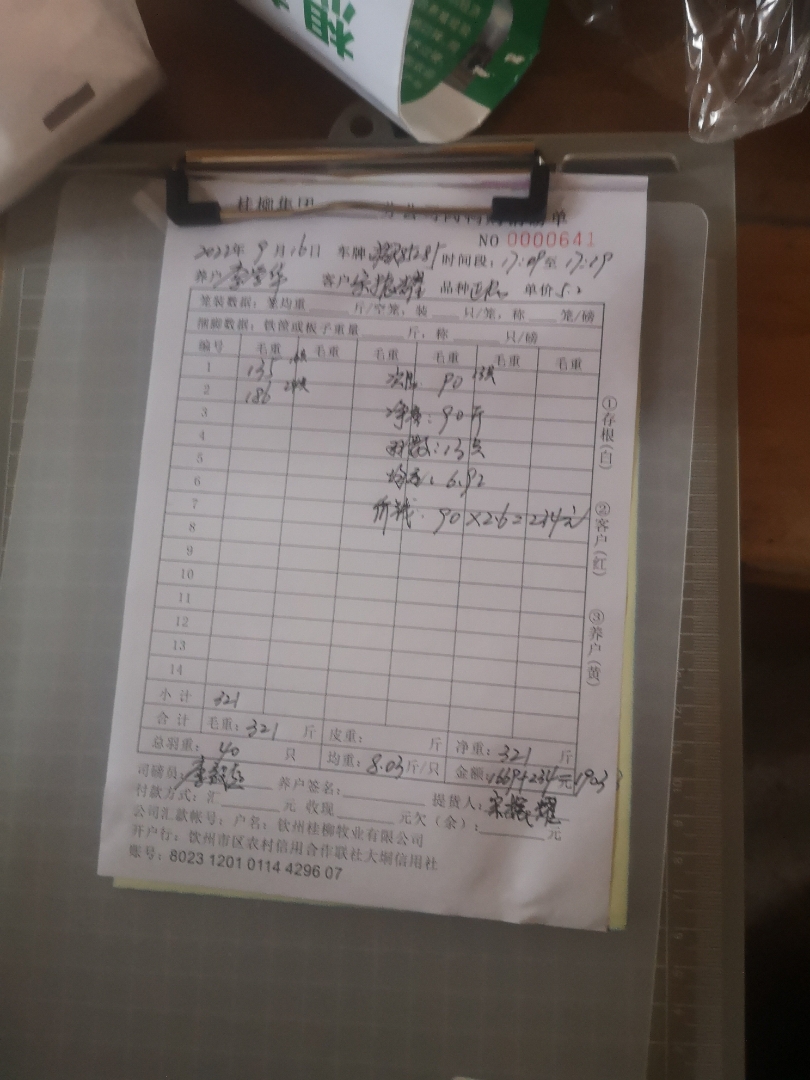 桂柳集团
分公司
单
NO 0000641
2022年 9月16日 车牌 时间段: 17:09至 17:19
养户 客户宋振耀 品种 单价5.2
笼装数据: 笼均重 斤/空笼, 装 只/笼, 称 笼/磅
捆脚数据: 铁筐或板子重量 斤, 称 只/磅
编号 毛重 毛重 毛重 毛重 毛重 毛重
1 135 次品 90 13只
2 186
3 净重: 90斤
4 羽数: 13只
5
6 均重: 6.92
7 价钱: 90×2.6=234元
8
9
10
11
12
13
14
小计 321
合计 毛重: 321 斤 皮重: 斤 净重: 321 斤
总羽重: 40 只 均重: 8.03斤/只 金额: 1669+234元 1903
司磅员: 养户签名: 提货人: 宋振耀
付款方式: 汇 元 收现 元欠(余): 元
公司汇款帐号: 户名: 钦州桂柳牧业有限公司
开户行: 钦州市区农村信用合作联社大垌信用社
账号: 8023 1201 0114 4296 07
①存根(白) ②客户(红) ③养户(黄)